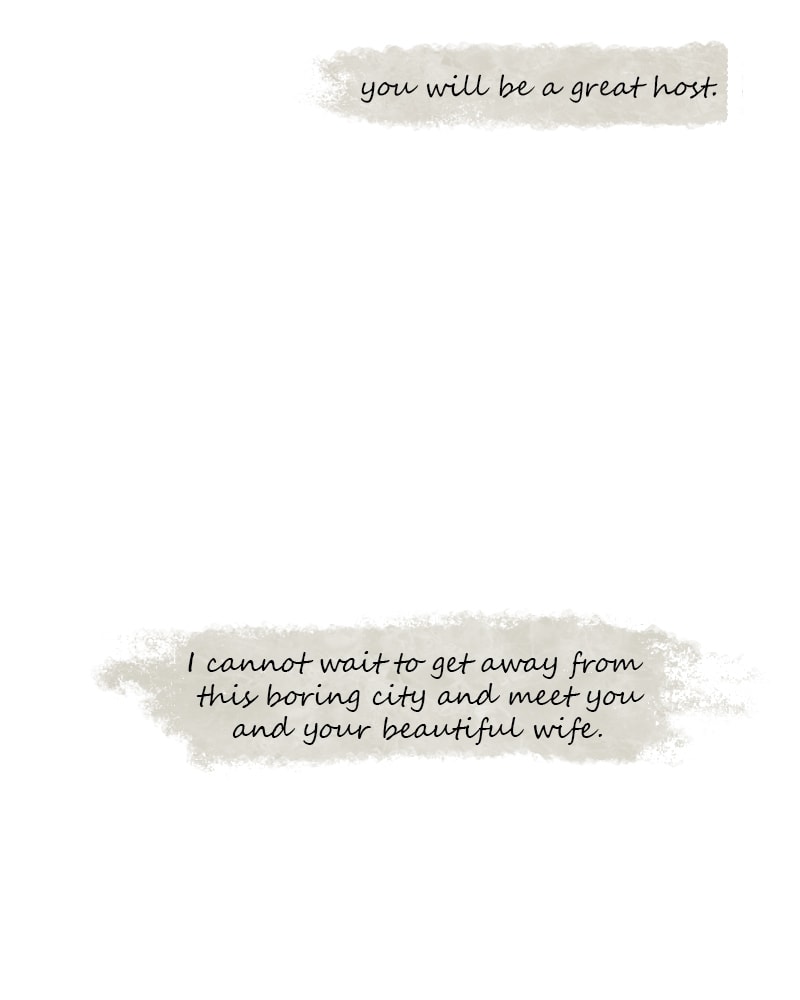 you will be a great host.
I cannot wait to get away from
this boring city and meet you
and your beautiful wife.